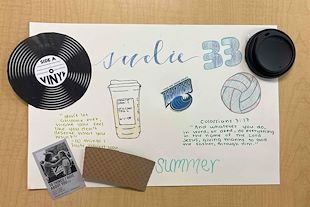 SIDE A
VINYL
sadie 33
Colossians 3:17
"And whatever you do,
in word, or deed, do everything
in the name of the Lord
Jesus, giving thanks to God
the Father, through Him."
"don't let
anyone ever
make you feel
like you don't
deserve what you
want."
summer